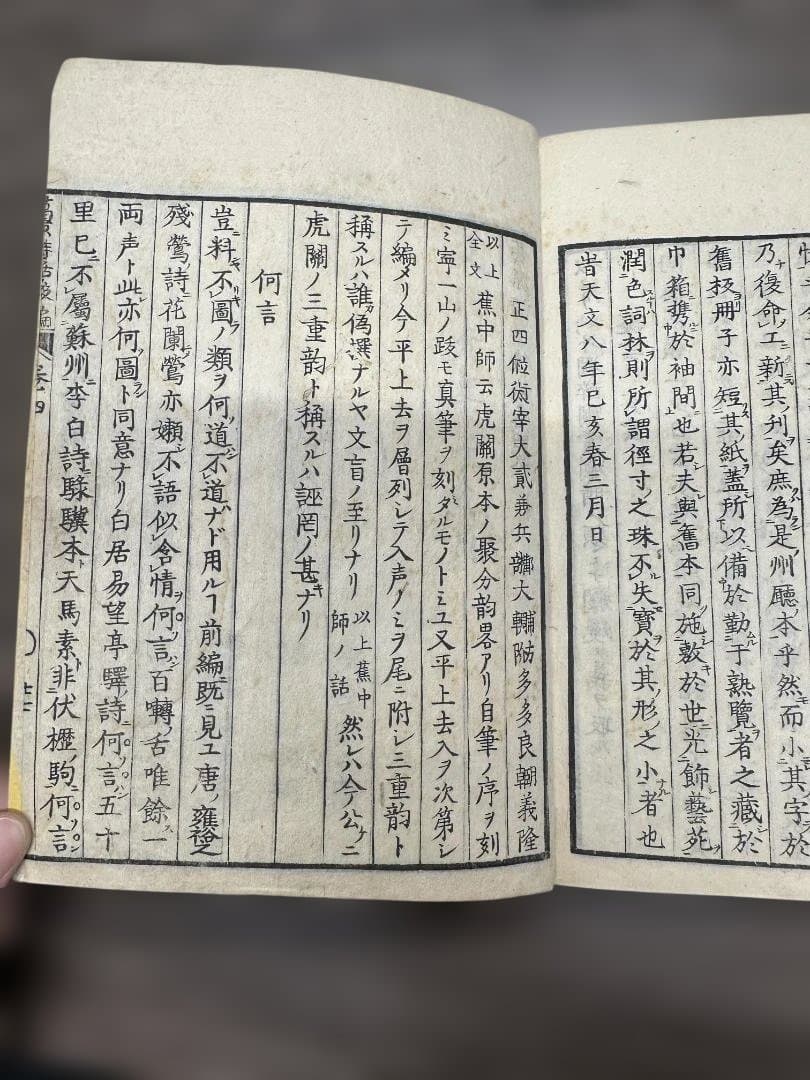 乃復命工新其刊矣庶為是州廳本乎然而小其字於
舊板冊子亦短其紙蓋所以備於勤于熟覽者之藏於
巾箱携於袖間也若夫與舊本同施敷於世光飾藝苑
潤色詞林則所謂徑寸之珠不失寳於其形之小者也
旹天文八年己亥春三月日
正四位術宰大貳兼兵部大輔多多良朝臣義隆
以上全文蕉中師云虎關原本ノ聚分韵畧アリ自筆ノ序ヲ刻
ミ寧一山ノ跋モ真筆ヲ刻ダルモノトミユ又平上去入ヲ次第シ
テ編メリ今平上去ヲ層列シテ入声ノミヲ尾ニ附シ三重韵ト
稱スルハ誰カ偽撰ナルヤ文盲ノ至リナリ以上蕉中師ノ話然レハ今公ケニ
虎關ノ三重韵ト稱スルハ誣罔ノ甚キナリ
何言
豈料不圖ノ類ヲ何道不道ナド用ルヿ前編既ニ見ユ唐ノ雍陶
殘鶯詩花闌鶯亦嬾不語似含情何言百囀舌唯餘一
両声ト此亦何圖ト同意ナリ白居易望亭驛詩何言五十
里已不屬蘇州李白詩騄驥本天馬素非伏櫪駒何言